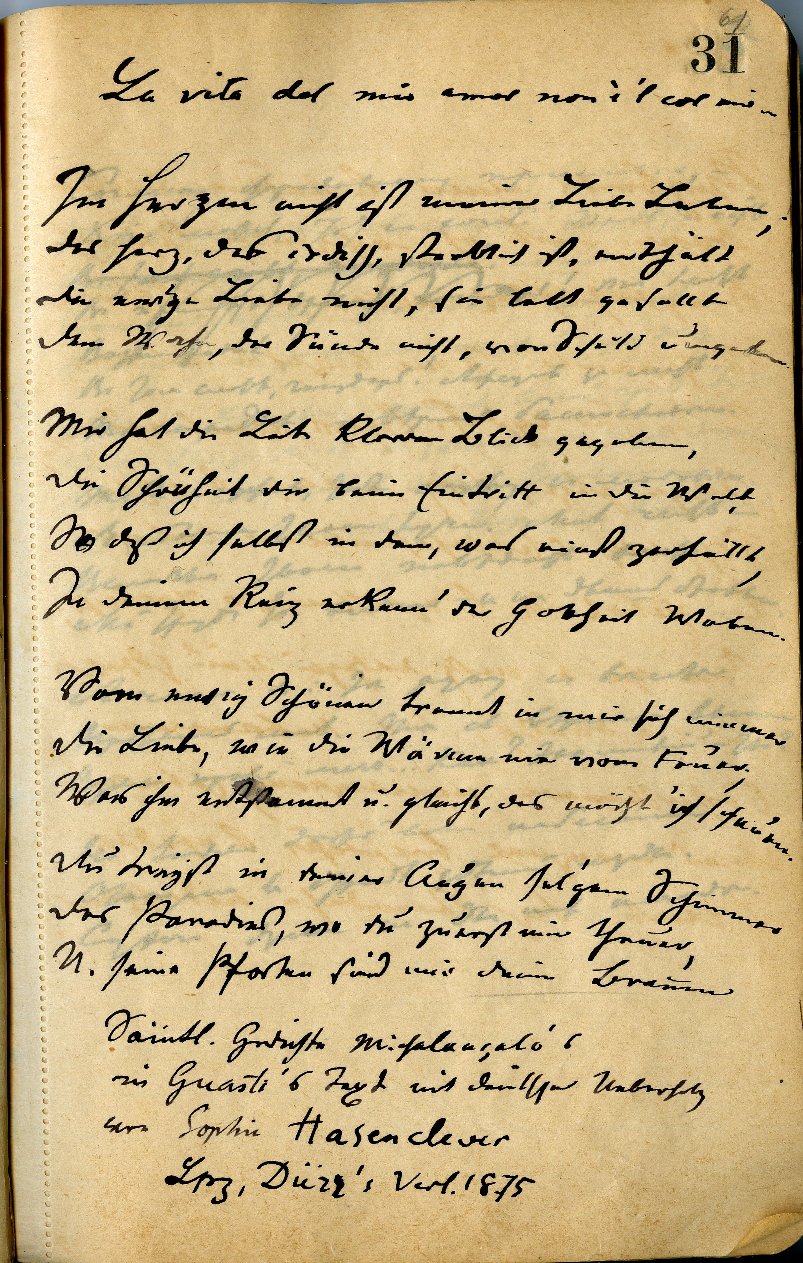 61
31
La vita del mio amor non è 'l cor mio
Im Herzen nicht ist meiner Liebe Leben,
das Herz, das irdisch, sterblich ist, enthält
die ew'ge Liebe nicht, sie lebt gesellt
dem Wahn, der Sünde nicht, von Schuld umgeben.
Mir hat die Liebe klaren Blick gegeben,
die Schönheit dir beim Eintritt in die Welt,
So daß ich selbst in dem, was einst zerfällt,
In deinem Reiz erkenn' der Gottheit Weben.
Vom ewig Schönen trennt in mir sich nimmer
die Liebe, wie die Wärme nie vom Feuer,
Was ihm entstammt u. gleicht, das möcht' ich schauen.
du trägst in deinen Augen sel'gen Schimmer
des Paradies, wo du zuerst mir theuer,
U. seine Pforten sind mir deine Brauen
Sämtl. Gedichte Michelangelo's
in Guasti's Text mit deutscher Uebersetz
von Sophie Hasenclever
Lpzg, Dürr's Verl. 1875